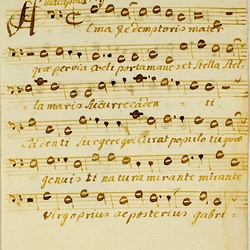 Alma Redemptoris mater
quæ pervia cæli porta manes et Stella Stel
la maris Sucurre caden ti
Cadenti Surgere qui curat populo tu quæ
genuisti natura mirante mirante
Virgo prius ac posterius gabri